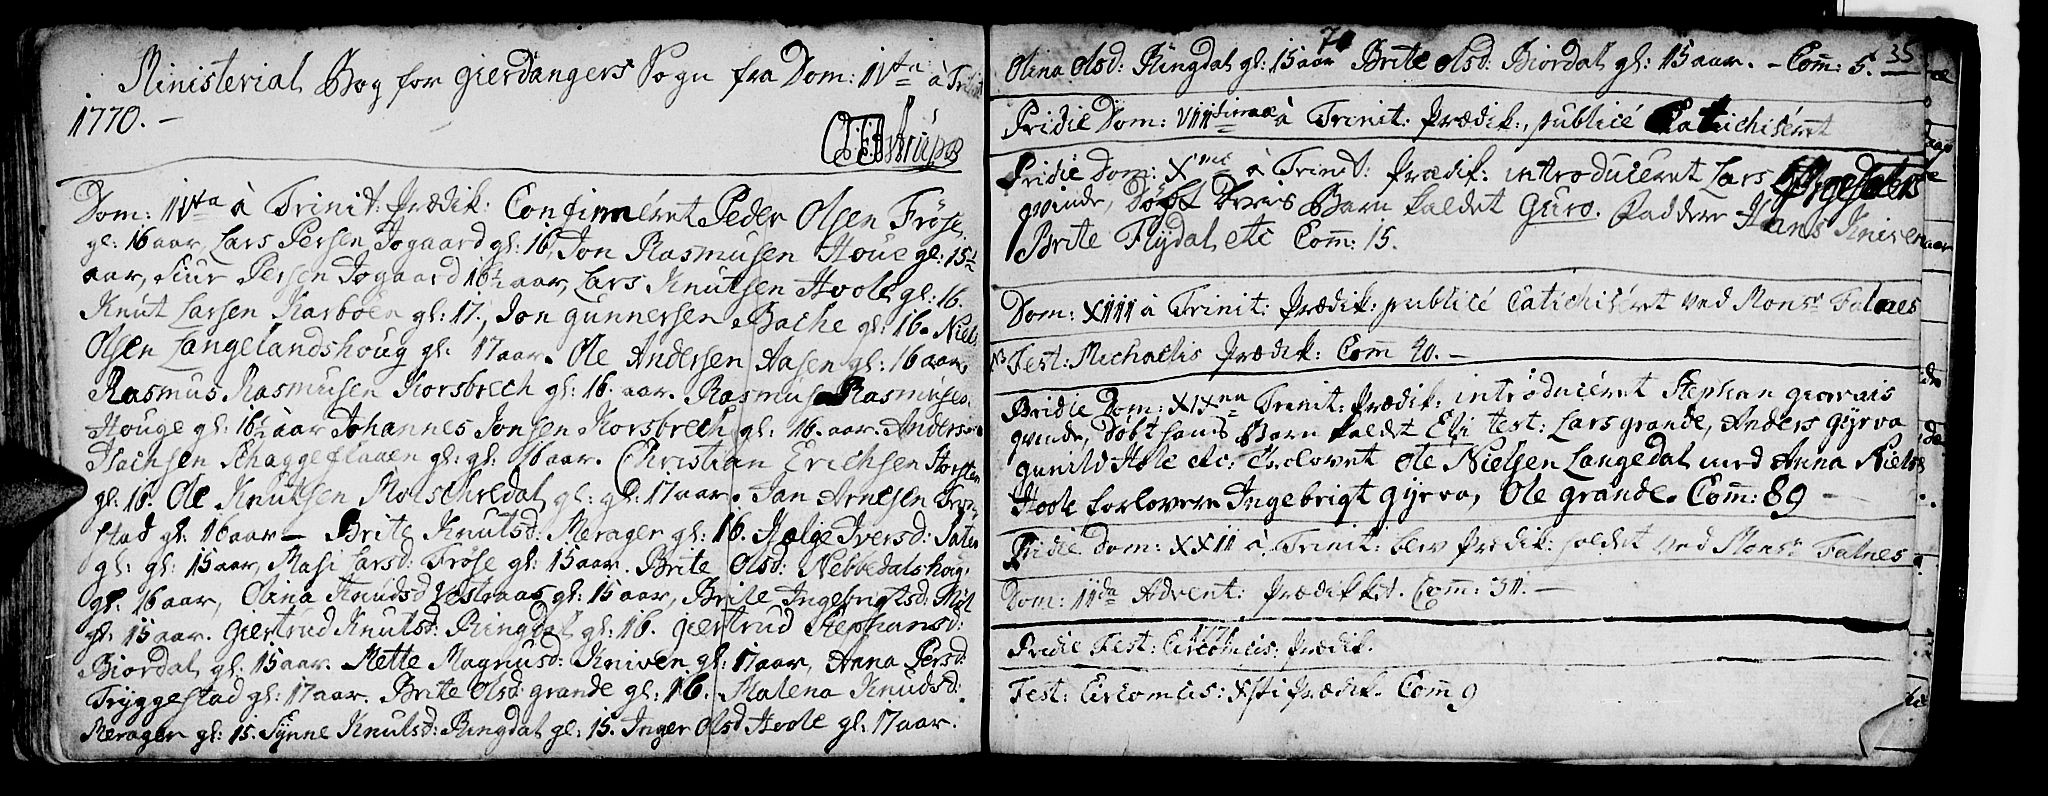 Ministerial Bog for Gierdangers Sogn fra Dom: IVta à Trinit
1770. –
Dom: IVta à Trinit: Prædik: Confirmeret Peder Olsen Frøse,
gl: 16 aar, Lars Persen Jogaard gl: 16, Jon Rasmusen Houe gl: 15½
aar, Siur Persen Jogaard 16½ aar, Lars Knutsen Hoole gl: 16.
Knut Larsen Karboen gl: 17., Jon Gunnersen Bache gl: 16. Niels
Olsen Langelandshoug gl: 17 aar. Ole Andersen Aasen gl: 16 aar,
Rasmus Rasmusen Korsbrech gl: 16. aar. Rasmus Rasmusen
Houge gl: 16½ aar Johannes Jonsen Korsbrech gl: 16. aar. Anders
Isachsen Schaggeflaaen gl: gl: 16 aar. Christian Erichsen
gl: 16. Ole Knutsen gl: gl: 17 aar. Jan Arnesen
stad gl: 16 aar – Brite Knutsd: Merager gl: 16. Helge Iversd:
gl: gl: 15 aar, Masi Larsd: Frøse gl: 15 aar. Brite Olsd: Nebbedalshoug
gl: 16 aar, Olina Knudsd Vestraas gl: 15 aar, Brite Ingebrigtsd:
gl: 15 aar. Giertrud Knutsd: Ringdal gl: 16. Giertrud Stephansd:
Biordal gl: 15 aar. Mette Magnusd: Kniven gl: 17 aar, Anna Persd:
Tryggestad gl: 17 aar. Brite Olsd: Grande gl: 16. Malena Knudsd:
Merager gl: 15. Synne Knutsd: Ringdal gl: 15. Inger Olsd Hoole gl: 17 aar.
70
35
Olina Olsd: Ringdal gl: 15 aar Brite Olsd: Biordal gl: 15 aar. – Com: 5.
Pridie Dom: VIII à Trinit: Prædik:, publicé Catichiséret
Pridie Dom: Xme à Trinit: Prædik: introduceret Lars
qvinde, Døbt Deris Barn kaldet Guro. Faddere Hans Kniven
Brite Flydal etc Com: 15.
Dom: XIII à Trinit: Prædik: publicé Catichiséret ved Monsr Falnes
NB Fest: Michaelis Prædik: Com 40. –
Pridie Dom: XIX Trinit: Prædik: introduceret Stephan
qvinde, Døbt hans Barn kaldet Eli test: Lars Grande, Anders Gyrva
Gunild Hole etc: Trolovet Ole Nielsen Langedal med Anna Nielsd
Hoole Forlovere Ingebrigt Gyrva, Ole Grande. Com: 89 –
Pridie Dom: XXII à Trinit: blev Prædik: holdet ved Monsr Falnes
Dom: IIda Advent: Prædikket. Com: 51. –
1771
Pridie Fest: Circomcis: Prædik.
Fest: Circomcis: Xsti Prædik. Com 9